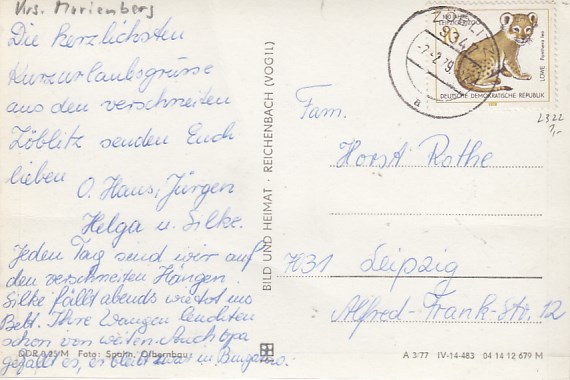 Krs. Marienberg
Die herzlichsten
Kurzurlaubsgrüsse
aus den verschneiten
Zöblitz senden Euch
lieben
O. Hans, Jürgen
Helga u. Silke.
Jeden Tag sind wir auf
den verschneiten Hängen.
Silke fällt abends
Bett. Ihre Wangen leuchten
schon von weiten. Auch Opa
gefällt es, er bleibt in
DDR 0,25 M Foto: Spahn, Olbernhau
BILD UND HEIMAT · REICHENBACH (VOGTL)
100 JAHRE
LEIPZIGER ZOO
LÖWE Panthera leo
DEUTSCHE DEMOKRATISCHE REPUBLIK
1978
a
2322
1,-
Fam.
Horst Rothe
7031 Leipzig
Alfred-Frank-Str. 12
A 3/77 IV-14-483 04 14 12 679 M